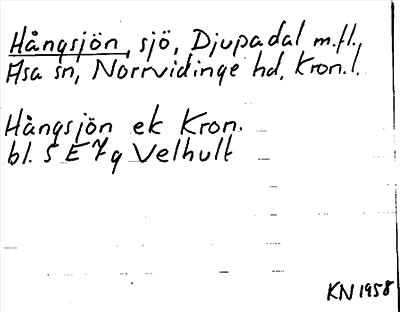 Hångsjön, sjö, Djupadal m.fl.,
Asa sn, Norrvidinge hd, Kron.l.
Hångsjön ek Kron.
bl. 5 E 7 g Velhult
KN 1958